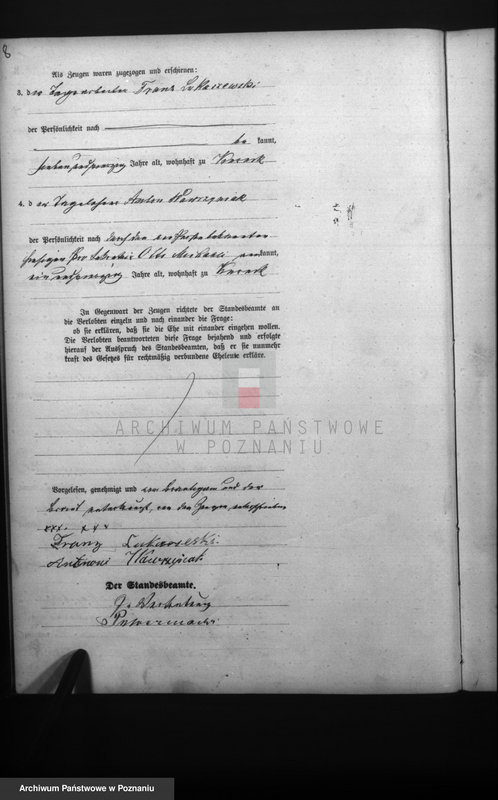 8
Als Zeugen waren zugezogen und erschienen:
3. der Tagearbeiter Franz Lukaszewski
der Persönlichkeit nach
be kannt,
siebenundzwanzig Jahre alt, wohnhaft zu
4. der Tagelöhner Anton Wawrzyniak
der Persönlichkeit nach durch den
Otto kannt,
einundzwanzig Jahre alt, wohnhaft zu
In Gegenwart der Zeugen richtete der Standesbeamte an
die Verlobten einzeln und nach einander die Frage:
ob sie erklären, daß sie die Ehe mit einander eingehen wollen.
Die Verlobten beantworteten diese Frage bejahend und erfolgte
hierauf der Ausspruch des Standesbeamten, daß er sie nunmehr
kraft des Gesetzes für rechtmäßig verbundene Eheleute erkläre.
ARCHIWUM PAŃSTWOWE
W POZNANIU
Vorgelesen, genehmigt und vom Bräutigam und der
Braut unterkreuzt, von den Zeugen unterschrieben
xxx. xxx
Franz Lukaszewski.
Antoni Wawrzyniak.
Der Standesbeamte.
Archiwum Państwowe w Poznaniu